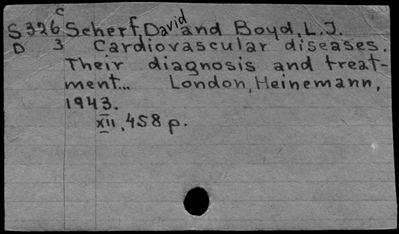 C
S326 Scherf, David and Boyd, L.J.
D 3 Cardiovascular diseases.
Their diagnosis and treat-
ment... London, Heinemann,
1943.
XII, 458 p.